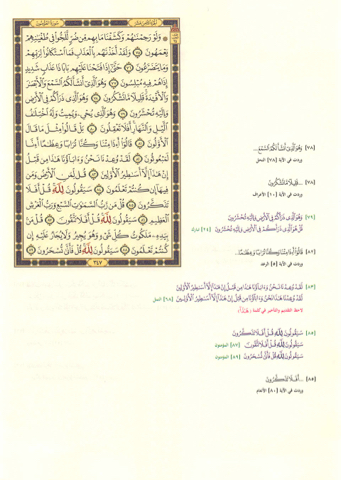 سورة المؤمنون
الجزء الثامن عشر
۞ وَلَوْ رَحِمْنَٰهُمْ وَكَشَفْنَا مَا بِهِم مِّن ضُرٍّ لَّلَجُّوا۟ فِى طُغْيَٰنِهِمْ
يَعْمَهُونَ ٧٥ وَلَقَدْ أَخَذْنَٰهُم بِٱلْعَذَابِ فَمَا ٱسْتَكَانُوا۟ لِرَبِّهِمْ
وَمَا يَتَضَرَّعُونَ ٧٦ حَتَّىٰٓ إِذَا فَتَحْنَا عَلَيْهِم بَابًا ذَا عَذَابٍ شَدِيدٍ
إِذَا هُمْ فِيهِ مُبْلِسُونَ ٧٧ وَهُوَ ٱلَّذِىٓ أَنشَأَ لَكُمُ ٱلسَّمْعَ وَٱلْأَبْصَٰرَ
وَٱلْأَفْـِٔدَةَ قَلِيلًا مَّا تَشْكُرُونَ ٧٨ وَهُوَ ٱلَّذِى ذَرَأَكُمْ فِى ٱلْأَرْضِ
وَإِلَيْهِ تُحْشَرُونَ ٧٩ وَهُوَ ٱلَّذِى يُحْىِۦ وَيُمِيتُ وَلَهُ ٱخْتِلَٰفُ
ٱلَّيْلِ وَٱلنَّهَارِ أَفَلَا تَعْقِلُونَ ٨٠ بَلْ قَالُوا۟ مِثْلَ مَا قَالَ
ٱلْأَوَّلُونَ ٨١ قَالُوٓا۟ أَءِذَا مِتْنَا وَكُنَّا تُرَابًا وَعِظَٰمًا أَءِنَّا
لَمَبْعُوثُونَ ٨٢ لَقَدْ وُعِدْنَا نَحْنُ وَءَابَآؤُنَا هَٰذَا مِن قَبْلُ
إِنْ هَٰذَآ إِلَّآ أَسَٰطِيرُ ٱلْأَوَّلِينَ ٨٣ قُل لِّمَنِ ٱلْأَرْضُ وَمَن
فِيهَآ إِن كُنتُمْ تَعْلَمُونَ ٨٤ سَيَقُولُونَ لِلَّهِ قُلْ أَفَلَا
تَذَكَّرُونَ ٨٥ قُلْ مَن رَّبُّ ٱلسَّمَٰوَٰتِ ٱلسَّبْعِ وَرَبُّ ٱلْعَرْشِ
ٱلْعَظِيمِ ٨٦ سَيَقُولُونَ لِلَّهِ قُلْ أَفَلَا تَتَّقُونَ ٨٧ قُلْ مَنۢ
بِيَدِهِۦ مَلَكُوتُ كُلِّ شَىْءٍ وَهُوَ يُجِيرُ وَلَا يُجَارُ عَلَيْهِ إِن
كُنتُمْ تَعْلَمُونَ ٨٨ سَيَقُولُونَ لِلَّهِ قُلْ فَأَنَّىٰ تُسْحَرُونَ ٨٩
٣٤٧
[٧٨] وَهُوَ ٱلَّذِىٓ أَنشَأَ لَكُمُ ٱلسَّمْعَ...
وردت في الآية [٧٨] النحل
[٧٨] ...قَلِيلًا مَّا تَشْكُرُونَ
وردت في الآية [١٠] الأعراف
[٧٩] وَهُوَ ٱلَّذِى ذَرَأَكُمْ فِى ٱلْأَرْضِ وَإِلَيْهِ تُحْشَرُونَ
قُلْ هُوَ ٱلَّذِى ذَرَأَكُمْ فِى ٱلْأَرْضِ وَإِلَيْهِ تُحْشَرُونَ [٢٤] تبارك
[٨٢] قَالُوٓا۟ أَءِذَا مِتْنَا وَكُنَّا تُرَابًا وَعِظَٰمًا...
وردت في الآية [٥] الرعد
[٨٣] لَقَدْ وُعِدْنَا نَحْنُ وَءَابَآؤُنَا هَٰذَا مِن قَبْلُ إِنْ هَٰذَآ إِلَّآ أَسَٰطِيرُ ٱلْأَوَّلِينَ
لَقَدْ وُعِدْنَا هَٰذَا نَحْنُ وَءَابَآؤُنَا مِن قَبْلُ إِنْ هَٰذَآ إِلَّآ أَسَٰطِيرُ ٱلْأَوَّلِينَ [٦٨] النمل
لاحظ التقديم والتأخير في كلمة
[٨٥] سَيَقُولُونَ لِلَّهِ قُلْ أَفَلَا تَذَكَّرُونَ
سَيَقُولُونَ لِلَّهِ قُلْ أَفَلَا تَتَّقُونَ [٨٧] المؤمنون
سَيَقُولُونَ لِلَّهِ قُلْ فَأَنَّىٰ تُسْحَرُونَ [٨٩] المؤمنون
[٨٥] ...أَفَلَا تَذَكَّرُونَ
وردت في الآية [٨٠] الأنعام